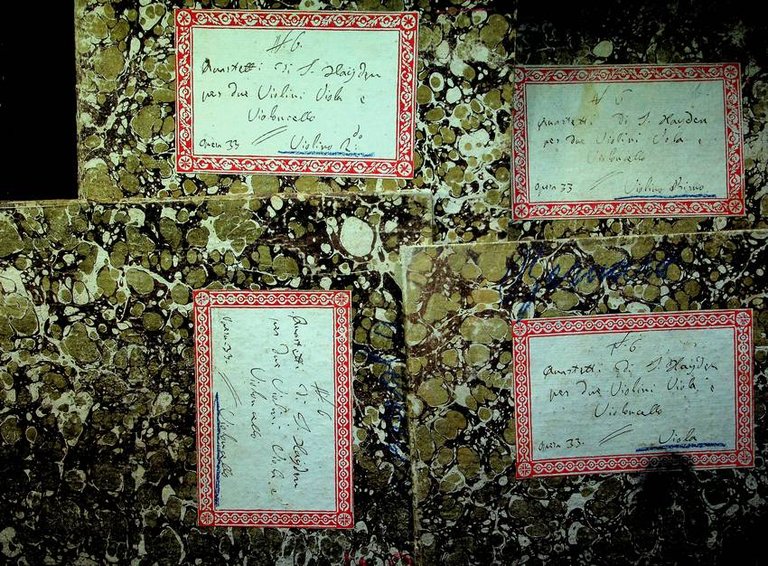 N.º 6
Quartetti di S. Hayden
per due Violini Viola e
Violoncello
Opera 33 Violino 2.do
N 6
Quartetti di S. Hayden
per due Violini Viola e
Violoncello
Opera 33 Violino Primo
N.º 6
Quartetti di S. Hayden
per due Violini Viola e
Violoncello
Opera 33. Violoncello
N.º 6
Quartetti di S. Hayden
per due Violini Viola e
Violoncello
Opera 33. Viola